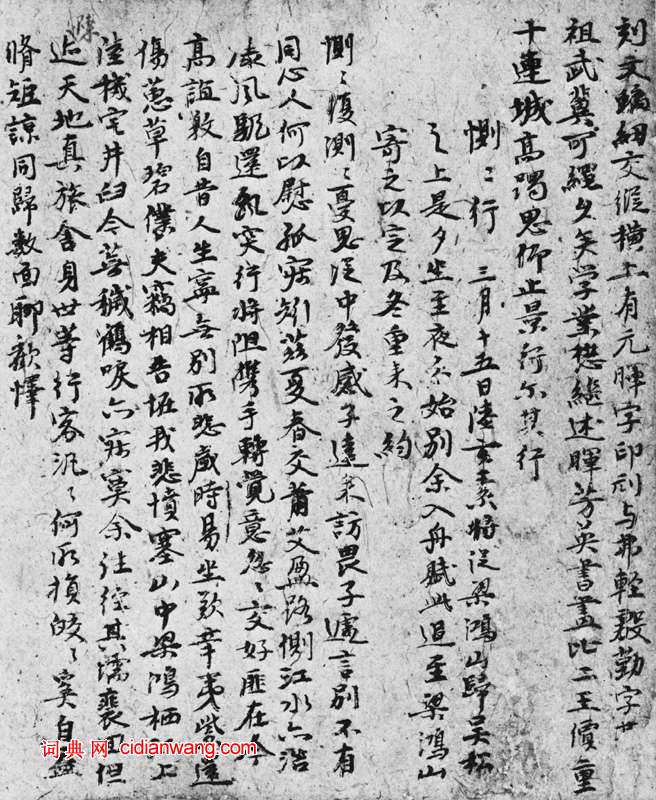 刻文螭紐交縱橫上有元暉字印刓与弗輕毅勤字
祖武冀可繩久矣学業懋繼述暉芳英書畫比二王價重
十連城高躅思仰止景行尓其行
惻〻行 三月十五日陸玄素將從梁鴻山歸吳松
之上是夕坐至夜分始別余入舟賦此追至梁鴻山
寄之以定及冬重来之約
惻〻復惻〻憂思從中發感子遠来訪畏子遽言別不有
同心人何以慰孤寂矧茲夏春交蕭艾盈路側江水亦浩
漾風颿還飄突行將阻攜手轉覺意忽〻交好匪在今
高誼敦自昔人生寧無別所悲歲時易坐歎辛夷紫還
傷蕙草碧僕夫竊相告我悲憤塞山中梁鴻栖江上
陸機宅井臼今蕪穢鶴唳亦寂寞余往其濡裘但
迹天地真旅舍身世等行客汎〻何所損皎〻奚自益
脩短諒同歸數面聊歡懌
词典网 cidianwang.com